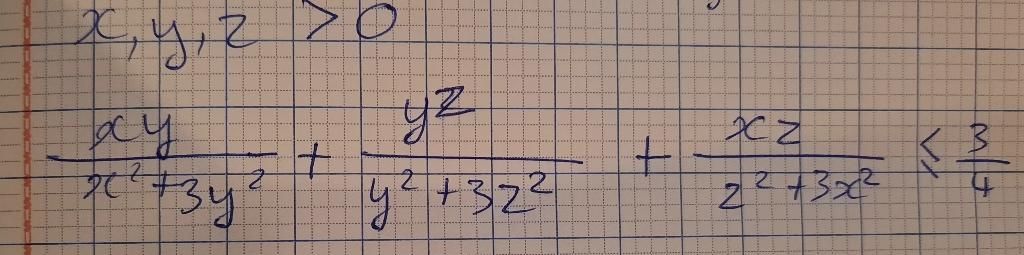 x, y, z > 0
xy / (x² + 3y²) + yz / (y² + 3z²) + xz / (z² + 3x²) ≤ 3/4